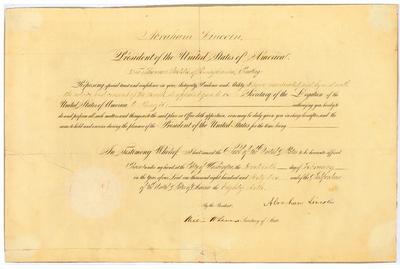 Abraham Lincoln,
President of the United States of America.
To Bayard of Pennsylvania, Greeting:
Reposing special trust and confidence in your Integrity, Prudence and Ability I have nominated and by and with
the advice and consent of the Senate do appoint you to be Secretary of the Legation of the
United States of America to authorizing you hereby to
do and perform all such matters and things as to the said place or Office doth appertain, or as may be duly given you in charge hereafter, and the
same to hold and exercise during the pleasure of the President of the United States for the time being.
In Testimony Whereof, I have caused the Seal of the United States to be hereunto affixed.
Given under my hand at the City of Washington, the day of
in the year of our Lord one thousand eight hundred and and of the Independence
of the United States of America the Eighty
Abraham Lincoln
By the President
Secretary of State